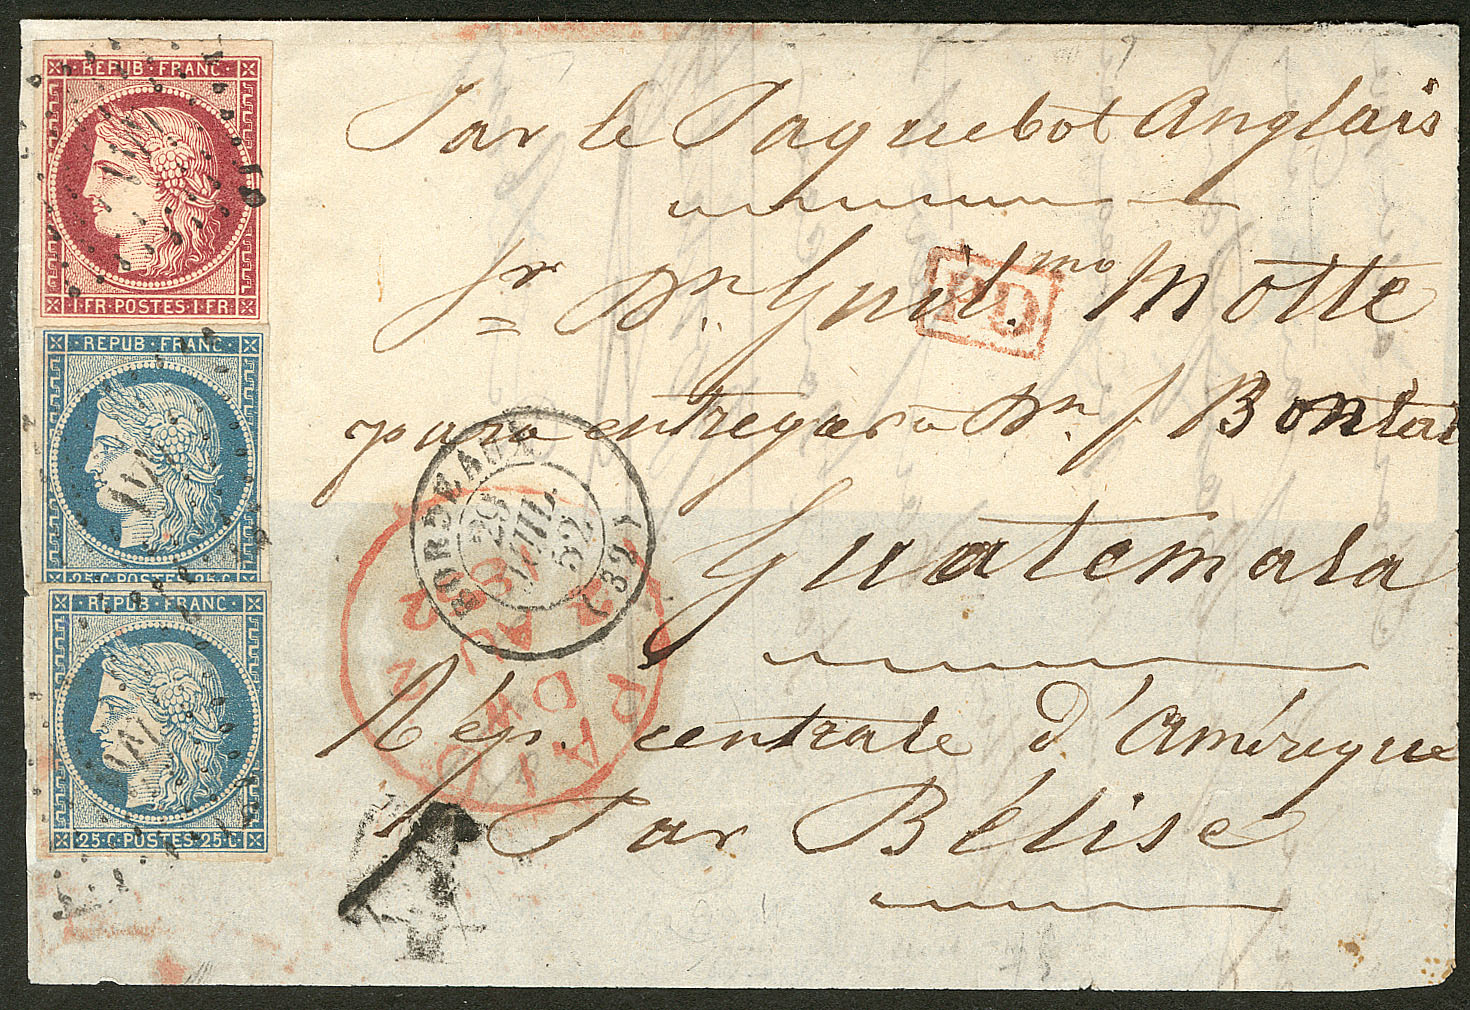 REPUB·FRANC·
1·FR·POSTES·1·FR
REPUB·FRANC·
25·C·POSTES·25·C·
REPUB·FRANC·
25·C·POSTES·25·C·
Par le Paquebot Anglais
PD
Sr Dn. Guil.mo Motte
para entregar a Dn. J. Bontat
Guatemala
Rép. centrale d'Amérique
Par Bélise
BORDEAUX
29
JUIL.
52
(32)
PAID
2 AU 2